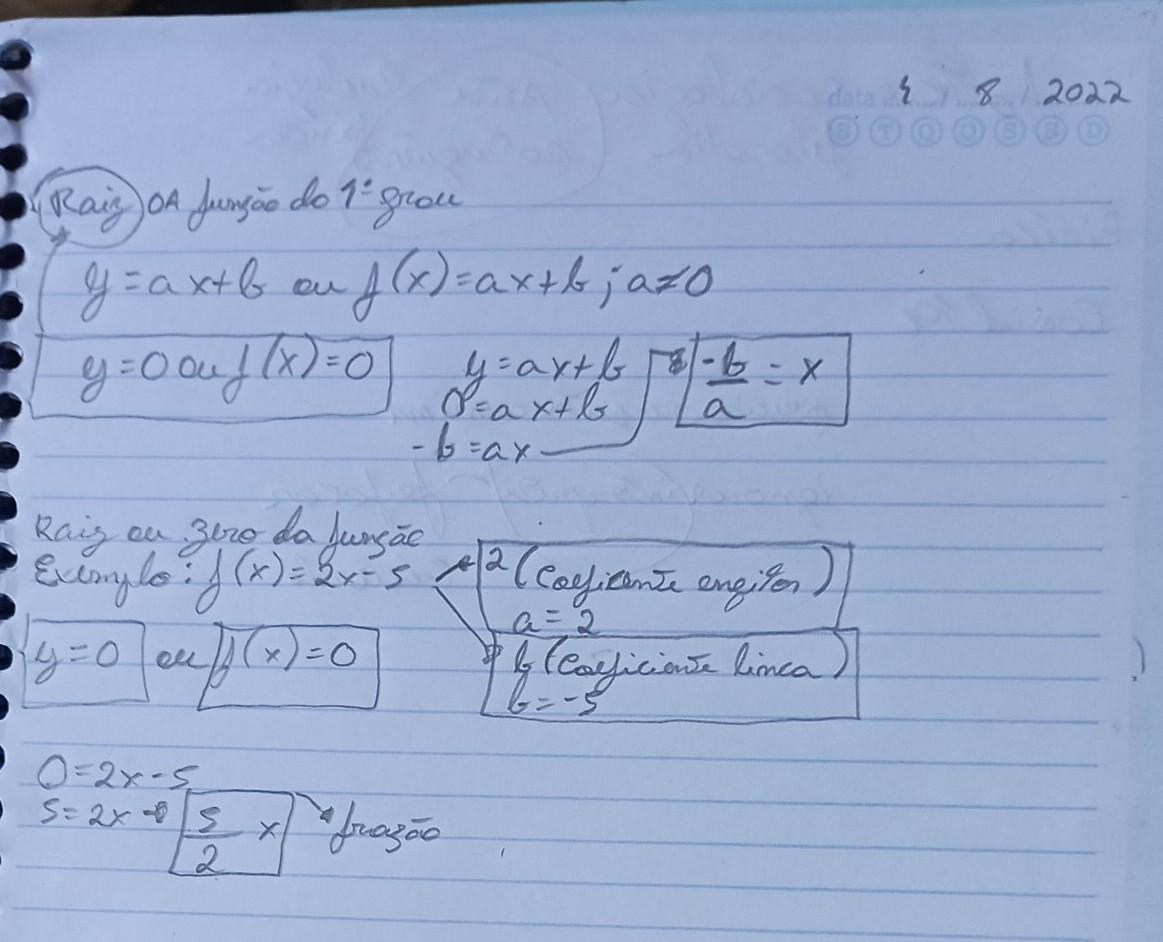 data 4 / 8 2022
S T Q Q S S D
Raiz DA função do 1º grau
y = ax+b ou f(x) = ax+b ; a≠0
y=0 ou f(x)=0
y=ax+b
0=ax+b
-b=ax
-b/a = x
Raiz ou zero da função
Exemplo: f(x)=2x-5
2 (Coeficiente
a=2
b (Coeficiente linea)
b=-5
y=0 ou f(x)=0
0=2x-5
5=2x → 5/2 x → fração